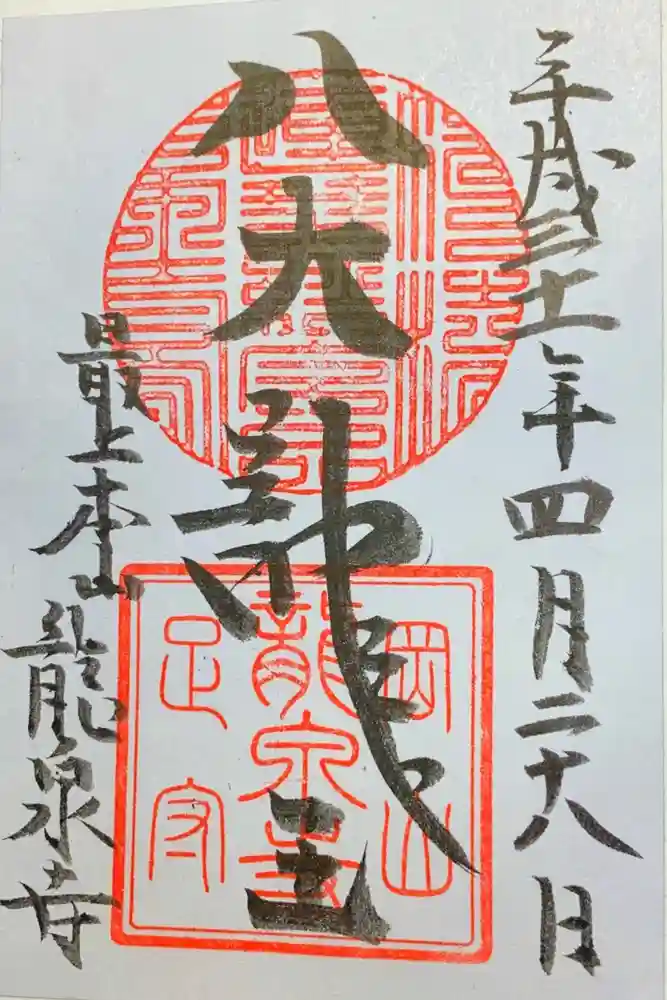 平成三十一年四月二十八日
八大龍王
最上本山龍泉寺
岡山
龍泉寺
足守